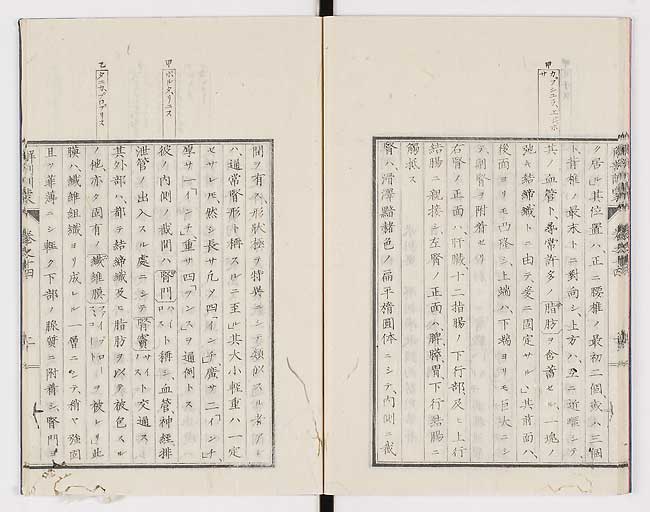 甲
カプシュラ、エヂポサ
居ル」其位置ハ、正ニ腰椎ノ最初二個、或ハ三個
ト、脊椎ノ最末トニ對向シ、上方ハ
其ノ血管ト、尋常許多ノ脂肪ヲ含蓄セル、一塊ノ
弛キ結締織トニ由テ、愛ニ固定サル」其前面ハ、
後面ヨリモ凸隆シ、上端ハ、下端ヨリモ巨大ニシ
テ、副腎ヲ附着セリ
右腎ノ正面ハ、肝臓、十二指腸ノ下行部、及ヒ上行
結腸ニ親接シ、左腎ノ正面ハ、脾、膵、胃、下行結腸ニ
觸抵ス
腎ハ、滑澤黯赭色ノ扁平楕圓体ニシテ、内側ニ截
甲
ポルタ、リニス
乙
タニカ、プロプリス
間ヲ有ス、形狀極テ特異ニシテ、類似スル者アル
ハ、通常腎形ト稱スルニ至ル」其大小輕重ハ、一定
セサレ𪜈、然シ長サ凡ソ四「インチ」、廣サ二「インチ」、
厚サ一「インチ」重サ四「ヲンス」ヲ通例トス
彼ノ内側ノ截間ハ、腎門ト稱シ、血管、神経、排
泄管ノ出入スル處ニシテ、腎竇ト交通ス
其外部ハ、都テ結締織及ヒ脂肪ヲ以テ被包スル
ノ他、亦タ固有ノ纎維膜ヲ被レリ」此
膜ハ、纎維組織ヨリ成レル一層ニシテ、稍ヤ強固
且ツ菲薄ニシ、輕ク下部ノ腺質ニ附着シ、腎門ヨ
解剖訓蒙
巻之十四
二